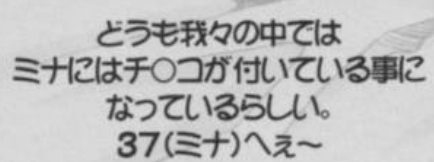 どうも我々の中では
ミナにはチ○コが付いている事に
なっているらしい。
37(ミナ)へぇ～